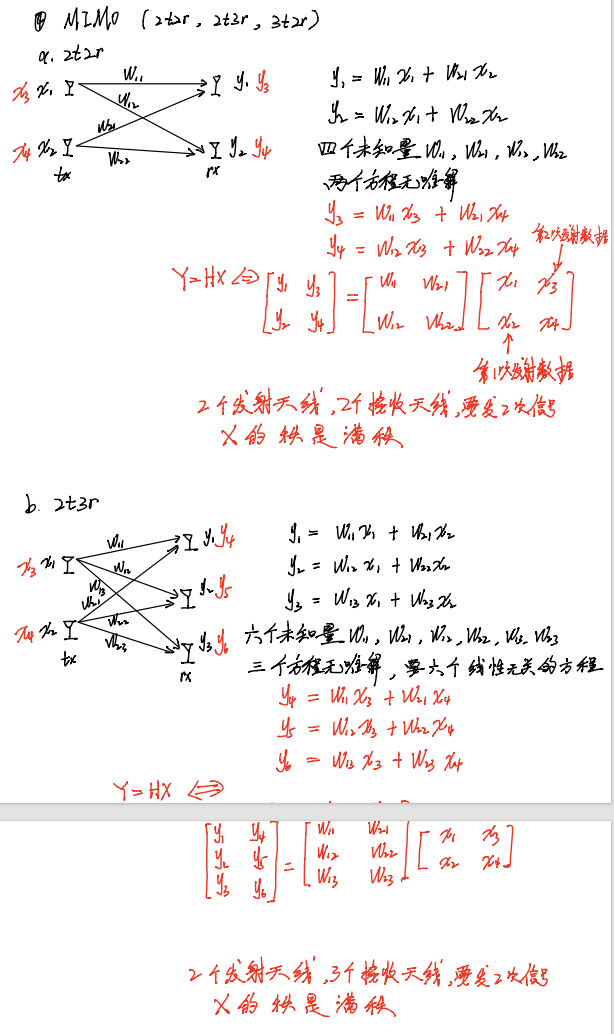 ④ MIMO (2t2r, 2t3r, 3t2r)
a. 2t2r
x₃ x₁ W₁₁ y₁ y₃
W₁₂
W₂₁
x₄ x₂ W₂₂ y₂ y₄
tx rx
y₁ = W₁₁x₁ + W₂₁x₂
y₂ = W₁₂x₁ + W₂₂x₂
四个未知量 W₁₁, W₂₁, W₁₂, W₂₂
两个方程无唯解
y₃ = W₁₁x₃ + W₂₁x₄
y₄ = W₁₂x₃ + W₂₂x₄
第2次发射数据
Y=HX ⇔ [y₁ y₃] = [W₁₁ W₂₁] [x₁ x₃]
[y₂ y₄] [W₁₂ W₂₂] [x₂ x₄]
第1次发射数据
2个发射天线, 2个接收天线, 要发2次信号
X的秩是满秩
b. 2t3r
x₃ x₁ W₁₁ y₁ y₄
W₁₂
W₁₃
W₂₁ y₂ y₅
x₄ x₂ W₂₂
W₂₃ y₃ y₆
tx rx
y₁ = W₁₁x₁ + W₂₁x₂
y₂ = W₁₂x₁ + W₂₂x₂
y₃ = W₁₃x₁ + W₂₃x₂
六个未知量 W₁₁, W₂₁, W₁₂, W₂₂, W₁₃, W₂₃
三个方程无唯解, 要六个线性无关的方程
y₄ = W₁₁x₃ + W₂₁x₄
y₅ = W₁₂x₃ + W₂₂x₄
y₆ = W₁₃x₃ + W₂₃x₄
Y=HX ⇔
[y₁ y₄] [W₁₁ W₂₁] [x₁ x₃]
[y₂ y₅] = [W₁₂ W₂₂] [x₂ x₄]
[y₃ y₆] [W₁₃ W₂₃]
2个发射天线, 3个接收天线, 要发2次信号
X的秩是满秩